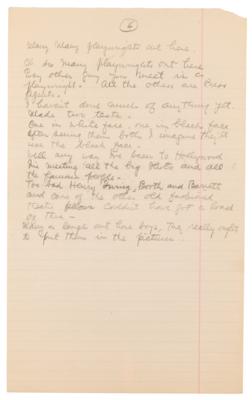 6
Many Many playwrights out here.
Oh so Many playwrights out here
Every other guy you meet is a
playwright. All the others are Press
Agents.
I haven't done much of anything yet.
Made two tests.
One in white face, one in black face
After seeing them both I imagine they'll
use the black face.
Well any way I've been to Hollywood
I'm meeting all the big shots and all
the famous people.
Too bad Henry Irving, Booth and Barrett
and some of the other old fashioned
theatre fellows couldn't have got a load
of this —
a laugh out here boys, They really ought
to put them in the pictures.